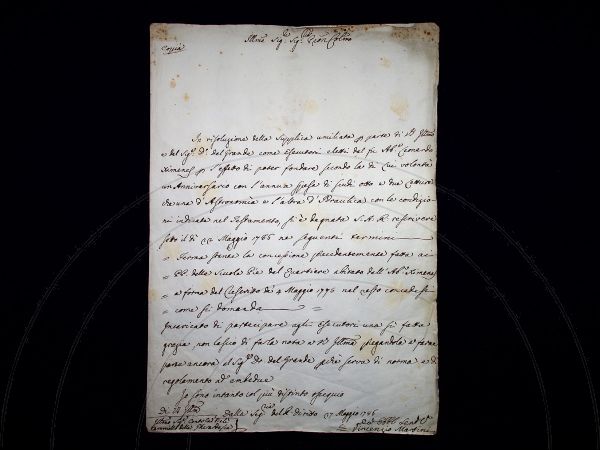 Copia
Illmo Sig.e Sig.e Pron Colmo
In risoluzione della Supplica umiliata p parte di VS Illma
e del Sig.r Dr. del Grande come Esecutori eletti del fù Ab.e Leonardo
Ximenes p l'effetto di poter fondare secondo la di lui volontà
un Anniversario con l'annua spesa di scudi otto e due Letture
da una d'Astronomia e l'altra d'Idraulica con le condizio=
ni indicate nel Testamento, si è degnata S. A. R. rescrivere
sotto il dì 22 Maggio 1786 ne seguenti termini
= Ferma stante la concessione precedentemente fatta ai
= PP. delle Scuole Pie del Quartiere abitato dall'Ab.e Ximenes
= a forma del Rescritto de' 4 Maggio nel resto concedesi
= come si domanda =
Incaricato di partecipare agli Esecutori una sì fatta
grazia non lascio di farla nota a VS Illma pregandola a farne
parte ancora al Sig.r Dr del Grande p che serva di norma e di
regolamento ad entrambe
Io sono intanto col più distinto ossequio
Di VS Illma
Dalla Seg.ria del R. Diritto 27 Maggio 1786
Illmo Sig.
Vincenzio Martini